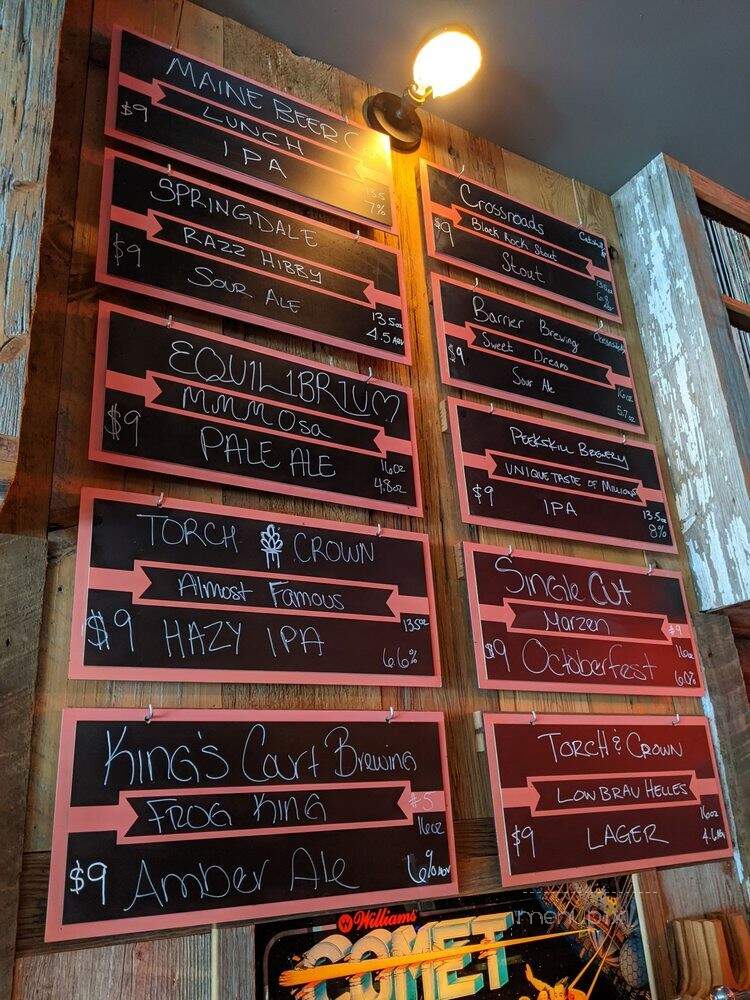 MAINE BEER C
LUNCH
$9
IPA
13.5
7%
SPRINGDALE
RAZZ HIBBY
$9
SOUR ALE
13.5oz
4.5 ABV
EQUILIBRIUM
MMMOsa
$9
PALE ALE
16oz
4.8oz
TORCH & CROWN
Almost Famous
13.5oz
$9 HAZY IPA
6.6%
KING'S Court Brewing
FROG KING
#5
16oz
$9 Amber Ale
6% ABV
Crossroads
Black Rock Stout
$9
Stout
13.5oz
Barrier Brewing
Oceanside
Sweet Dreams
$9
Sour Ale
16oz
5.7oz
PEEKSKILL BREWERY
UNIQUE TASTE OF MILLIONS
$9
IPA
13.5oz
8%
Single Cut
Marzen
#9
16oz
$9 Octoberfest
6.0%
TORCH & CROWN
LOW BRAU HELLES
16oz
$9
LAGER
Williams
COMET
menupix